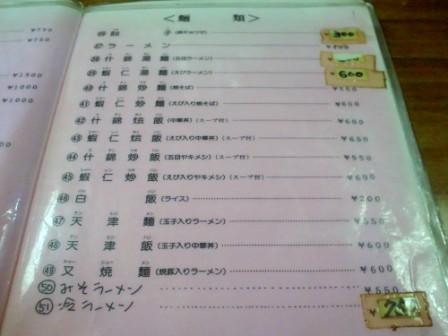 ＜麺類＞
餃 ¥300
㊲ラーメン
㊳什錦湯麺(五目ラーメン)
㊴蝦仁湯麺(えびラーメン) ¥600
㊵什錦炒麺(焼そば) ¥550
㊶蝦仁炒麺(えび入り焼そば) ¥650
㊷什錦烩飯(中華丼)(スープ付) ¥550
㊸蝦仁烩飯(えび入り中華丼)(スープ付) ¥650
㊹什錦炒飯(五目ヤキメシ)(スープ付) ¥550
㊺蝦仁炒飯(えび入りヤキメシ)(スープ付) ¥600
㊻白飯(ライス) ¥200
㊼天津麺(玉子入りラーメン) ¥550
㊽天津飯(玉子入り中華丼) ¥600
㊾叉焼麺(焼豚入りラーメン) ¥600
㊿みそラーメン ¥550
(51) ラーメン ¥250
¥750
¥750
¥1500
¥1000
¥1000